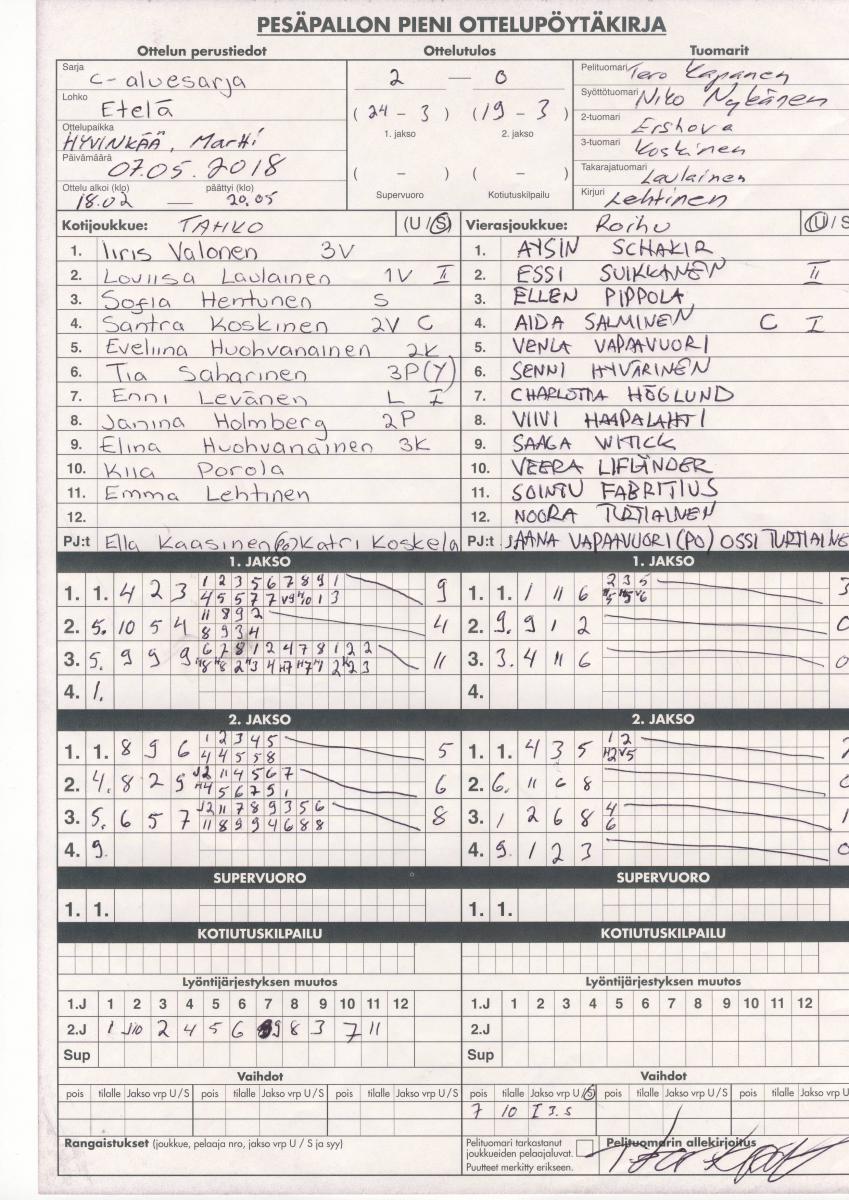 PESÄPALLON PIENI OTTELUPÖYTÄKIRJA
Ottelun perustiedot Ottelutulos Tuomarit
Sarja
C-aluesarja
Lohko
Etelä
Ottelupaikka
HYVINKÄÄ, Martti
Päivämäärä
07.05.2018
Ottelu alkoi (klo) päättyi (klo)
18.02 — 20.05
2 — 0
(24 - 3) (19 - 3)
1. jakso 2. jakso
( - ) ( - )
Supervuoro Kotiutuskilpailu
Pelituomari Tero Kapanen
Syöttötuomari Niko Nykänen
2-tuomari Ershova
3-tuomari Koskinen
Takarajatuomari Laulainen
Kirjuri Lehtinen
Kotijoukkue: TAHKO (U/S)
1. Iiris Valonen 3V
2. Loviisa Laulainen 1V II
3. Sofia Hentunen S
4. Santra Koskinen 2V C
5. Eveliina Huohvanainen 2K
6. Tia Saharinen 3P(Y)
7. Enni Levänen L I
8. Janina Holmberg 2P
9. Elina Huohvanainen 3K
10. Kiia Porola
11. Emma Lehtinen
12.
PJ:t Ella Kaasinen (PO) Katri Koskela
Vierasjoukkue: Roihu (U/S
1. AYSIN SCHAKIR
2. ESSI SUIKKANEN II
3. ELLEN PIPPOLA
4. AIDA SALMINEN C I
5. VENLA VAPAAVUORI
6. SENNI HYVÄRINEN
7. CHARLOTTA HÖGLUND
8. VIIVI HAAPALAHTI
9. SAAGA WITICK
10. VEERA LIFLÄNDER
11. SOINTU FABRITIUS
12. NOORA TURTIAINEN
PJ:t JAANA VAPAAVUORI (PO) OSSI TURTIAINE
1. JAKSO
1. 1. 4 2 3 1 2 3 5 6 7 8 9 1 9
2. 5. 10 5 4 11 8 9 2 4
8 9 3 4
3. 5. 9 9 9 6 7 8 1 2 4 7 8 1 2 2 11
4. 1.
1. JAKSO
1. 1. 1 11 6 2 3 5 3
2. 9. 9 1 2 0
3. 3. 4 11 6 0
4.
2. JAKSO
1. 1. 8 9 6 1 2 3 4 5 5
4 4 5 5 8
2. 4. 8 2 9 J2 11 4 5 6 7 6
H4 5 6 7 5 1
3. 5. 6 5 7 J2 11 7 8 9 3 5 6 8
11 8 9 9 4 6 8 8
4. 9.
2. JAKSO
1. 1. 4 3 5 1 2 2
H2 V5
2. 6. 11 6 8 0
3. 1 2 6 8 4 1
6
4. 9. 1 2 3 0
SUPERVUORO SUPERVUORO
1. 1. 1. 1.
KOTIUTUSKILPAILU KOTIUTUSKILPAILU
Lyöntijärjestyksen muutos Lyöntijärjestyksen muutos
1.J 1 2 3 4 5 6 7 8 9 10 11 12 1.J 1 2 3 4 5 6 7 8 9 10 11 12
2.J 1 J10 2 4 5 6 9 8 3 7 11 2.J
Sup Sup
Vaihdot Vaihdot
pois tilalle Jakso vrp U/S pois tilalle Jakso vrp U/S pois tilalle Jakso vrp U/S pois tilalle Jakso vrp U/S pois tilalle Jakso vrp U/S pois tilalle Jakso vrp U
7 10 I 3.S
Rangaistukset (joukkue, pelaaja nro, jakso vrp U / S ja syy)
Pelituomari tarkastanut
joukkueiden pelaajaluvat.
Puutteet merkitty erikseen.
Pelituomarin allekirjoitus